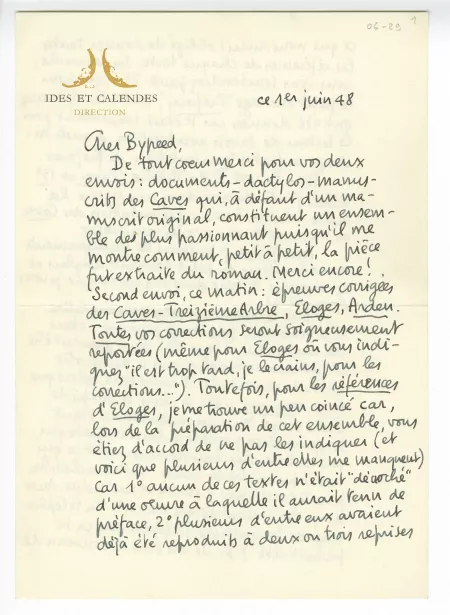 06-29 1
IDES ET CALENDES
DIRECTION
ce 1er juin 48
Cher Bypeed,
De tout coeur merci pour vos deux
envois : documents-dactylos-manus-
crits des Caves qui, à défaut d'un ma-
nuscrit original, constituent un ensem-
ble des plus passionnant puisqu'il me
montre comment, petit à petit, la pièce
fut extraite du roman. Merci encore!
Second envoi, ce matin : épreuves corrigées
des Caves-Treizième Arbre, Eloges, Arden.
Toutes vos corrections seront soigneusement
reportées (même pour Eloges où vous indi-
quez "il est trop tard, je le crains, pour les
corrections..."). Toutefois, pour les références
d'Eloges, je me trouve un peu coincé car,
lors de la préparation de cet ensemble, vous
étiez d'accord de ne pas les indiquer (et
voici que plusieurs d'entre elles me manquent)
Car 1° aucun de ces textes n'était "décroché"
d'une oeuvre à laquelle il aurait tenu de
préface, 2° plusieurs d'entre eux avaient
déjà été reproduits à deux ou trois reprises